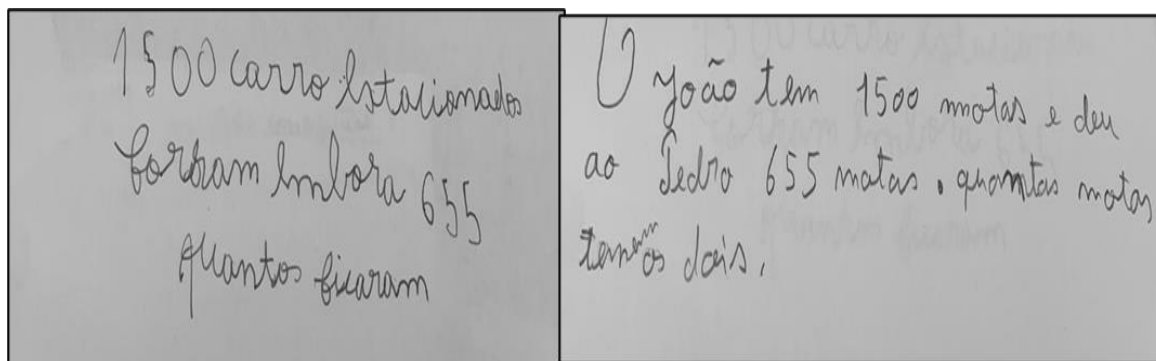 1500 carro Estacionados
forram Embora 655
quantos ficaram
O João tem 1500 motas e deu
ao Pedro 655 motas, quantas motas
temem os dois.